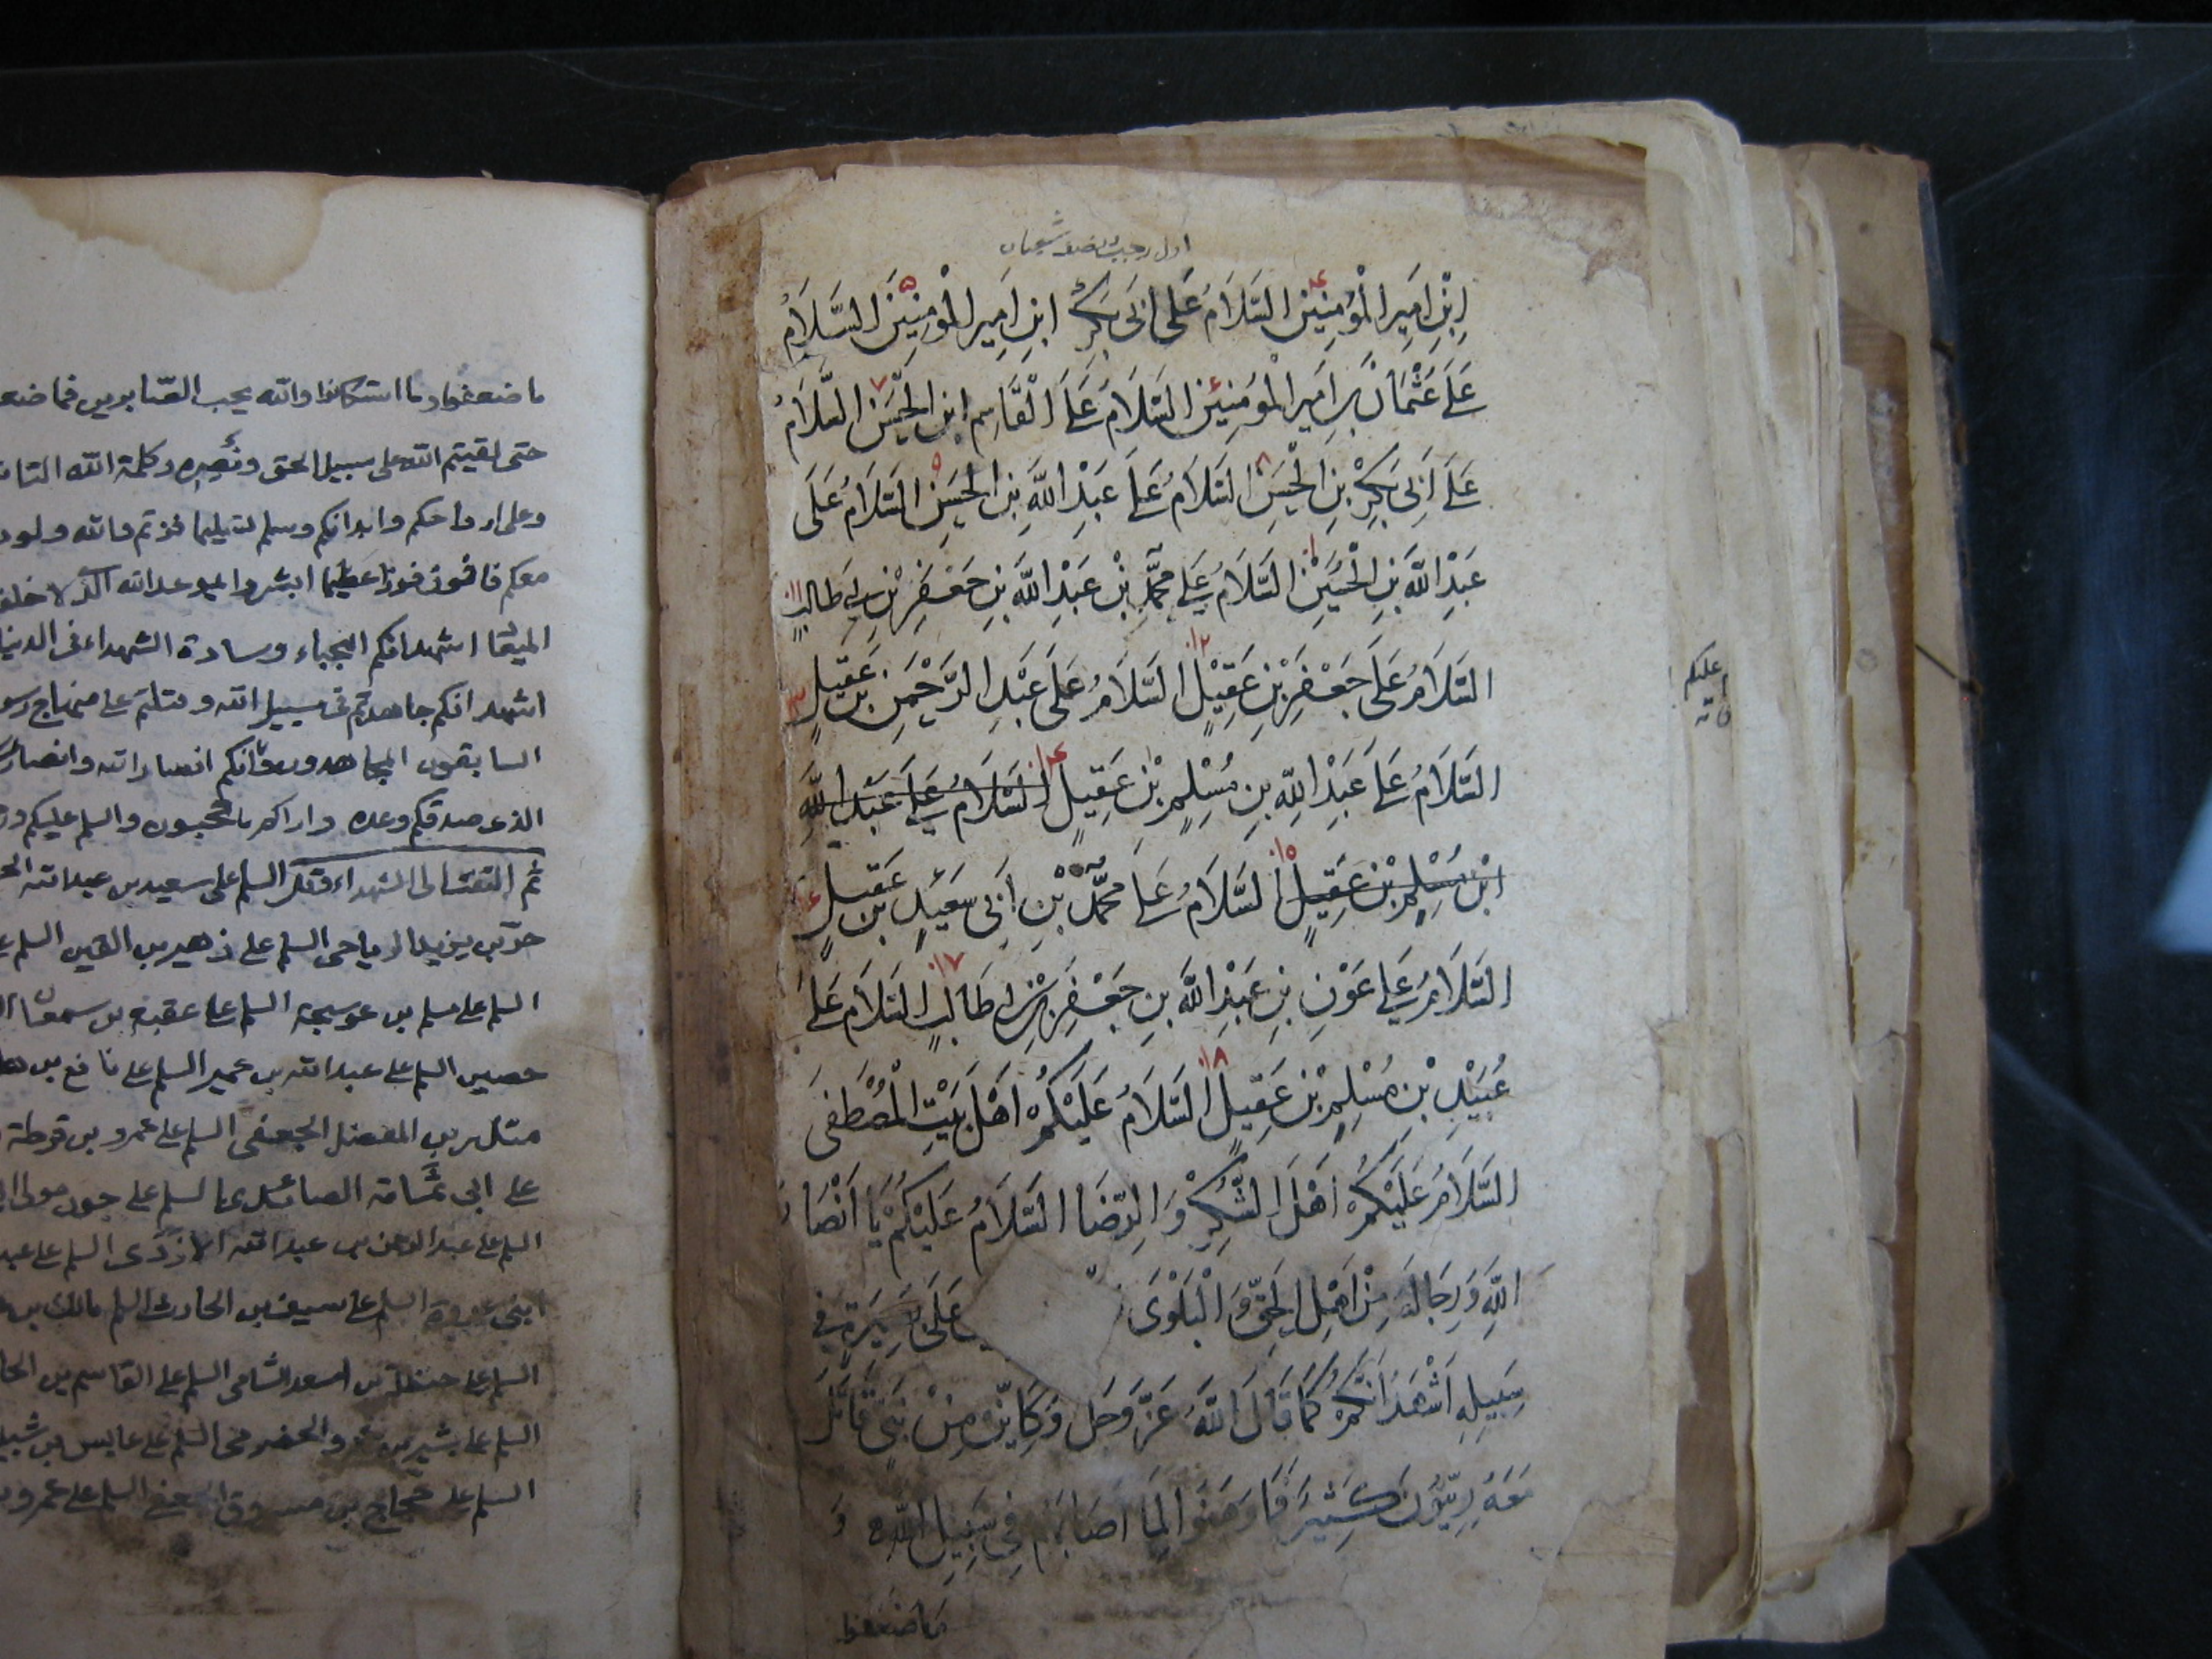 اول رجب ونصف شعبان
اِبْنِ اَمِيرِ الْمُؤمِنِينَ السَّلَامُ عَلَى اَبِي بَكْرِ ابْنِ اَمِيرِ الْمُؤْمِنِينَ السَّلَامُ
عَلَى عُثْمَانَ بنِ اَمِيرِ الْمُؤمِنِينَ السَّلَامُ عَلَى الْقَاسِمِ ابْنِ الْحَسَنِ السَّلَامُ
عَلَى اَبِي بَكْرِ بْنِ الْحَسَنِ السَّلَامُ عَلَى عَبْدِ اللَّهِ بْنِ الْحَسَنِ السَّلَامُ عَلَى
عَبْدِ اللَّهِ بْنِ الْحُسَيْنِ السَّلَامُ عَلَى مُحَمَّدِ بْنِ عَبْدِ اللَّهِ بْنِ جَعْفَرِ بْنِ ابي طَالِبٍ ١١
السَّلَامُ عَلَى جَعْفَرِ بْنِ عَقِيلٍ السَّلَامُ عَلَى عَبْدِ الرَّحْمَنِ بْنِ عَقِيلٍ
السَّلَامُ عَلَى عَبْدِ اللَّهِ بْنِ مُسْلِمِ بْنِ عَقِيلٍ السَّلَامُ عَلَى عَبْدِ اللَّهِ
ابْنِ مُسْلِمِ بْنِ عَقِيلٍ السَّلَامُ عَلَى مُحَمَّدِ بْنِ اَبِي سَعِيدِ بْنِ عَقِيلٍ
السَّلَامُ عَلَى عَوْنِ بْنِ عَبْدِ اللَّهِ بْنِ جَعْفَرِ بْنِ ابي طَالِبٍ السَّلَامُ عَلَى
عُبَيْدِ بْنِ مُسْلِمِ بْنِ عَقِيلٍ السَّلَامُ عَلَيْكُمْ اَهْلَ بَيْتِ الْمُصْطَفَى
السَّلَامُ عَلَيْكُمْ اَهْلَ الشُّكْرِ وَالرِّضَا السَّلَامُ عَلَيْكُمْ يَا اَنْصَارَ
اللَّهِ وَرِجَالَهُ مِنْ اَهْلِ الْحَقِّ وَالْبَلْوَى عَلَى بَصِيرَةٍ فِي
سَبِيلِهِ اَشْهَدُ اَنَّكُمْ كَمَا قَالَ اللَّهُ عَزَّ وَجَل وَكَايِّنْ مِنْ نَبِيٍّ قَاتَلَ
مَعَهُ رِبِّيُّونَ كَثِيرٌ فَمَا وَهَنُوا لِمَا اَصَابَهُمْ فِي سَبِيلِ اللَّهِ وَ
ما ضعفوا
عليكم
ما ضعفوا وما استكانوا والله يحب الصابرين فما ضعف
حتى لقيتم الله على سبيل الحق ونصره وكلمة الله التا
وعلى ارواحكم وابدانكم وسلم تسليما فزتم والله ولود
معكم فافوز فوزا عظيما ابشروا بموعد الله الذى لا خلف
الميعاد اشهد انكم النجباء وسادة الشهداء فى الدنيا
اشهد انكم جاهدتم فى سبيل الله وقتلتم على منهاج رسو
السابقون المجاهدون وانكم انصار الله وانصار
الذى صدقكم وعده واراكم ما تحبون والسلم عليكم و
ثم التفت الى الشهداء فقل السلم على سعيد بن عبد الله الح
حر بن يزيد الرياحى السلم على زهير بن القين السلم
السلم على مسلم بن عوسجة السلم على عقبة بن سمعان
حصين السلم على عبد الله بن عمير السلم على نافع بن
بن المفضل الجعفى السلم على عمرو بن قرطة
على ابى ثمامة الصائدى السلم على جون مولى
السلم على عبد الرحمن بن عبد الله الازدى السلم على عبد
ابنى عروة السلم على سيف بن الحارث السلم مالك بن
السلم على حنظلة بن اسعد الشامى السلم على القاسم بن الحا
السلم على بشير بن عمرو الحضرمى السلم على عابس بن شبيب
السلم على حجاج بن مسروق الجعفى السلم على عمرو